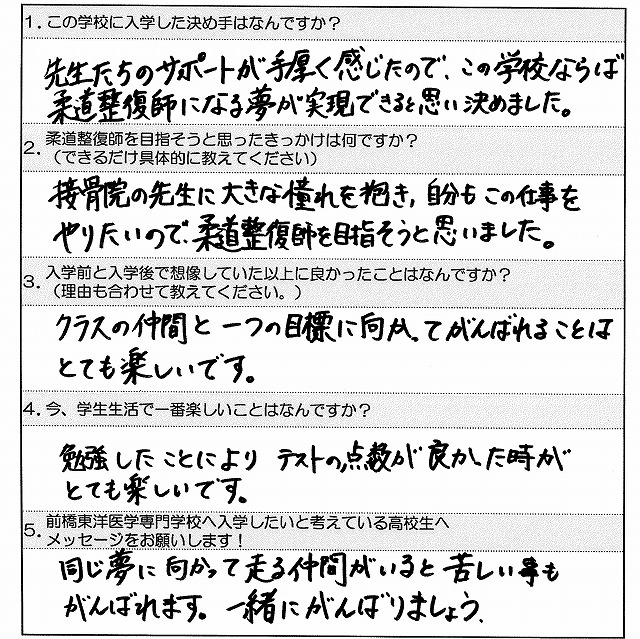 1. この学校に入学した決め手はなんですか？
先生たちのサポートが手厚く感じたので、この学校ならば
柔道整復師になる夢が実現できると思い決めました。
2. 柔道整復師を目指そうと思ったきっかけは何ですか？
（できるだけ具体的に教えてください）
接骨院の先生に大きな憧れを抱き，自分もこの仕事を
やりたいので、柔道整復師を目指そうと思いました。
3. 入学前と入学後で想像していた以上に良かったことはなんですか？
（理由も合わせて教えてください。）
クラスの仲間と一つの目標に向かってがんばれることは
とても楽しいです。
4. 今、学生生活で一番楽しいことはなんですか？
勉強したことによりテストの点数が良かった時が
とても楽しいです。
5. 前橋東洋医学専門学校へ入学したいと考えている高校生へ
メッセージをお願いします！
同じ夢に向かって走る仲間がいると苦しい事も
がんばれます。一緒にがんばりましょう.